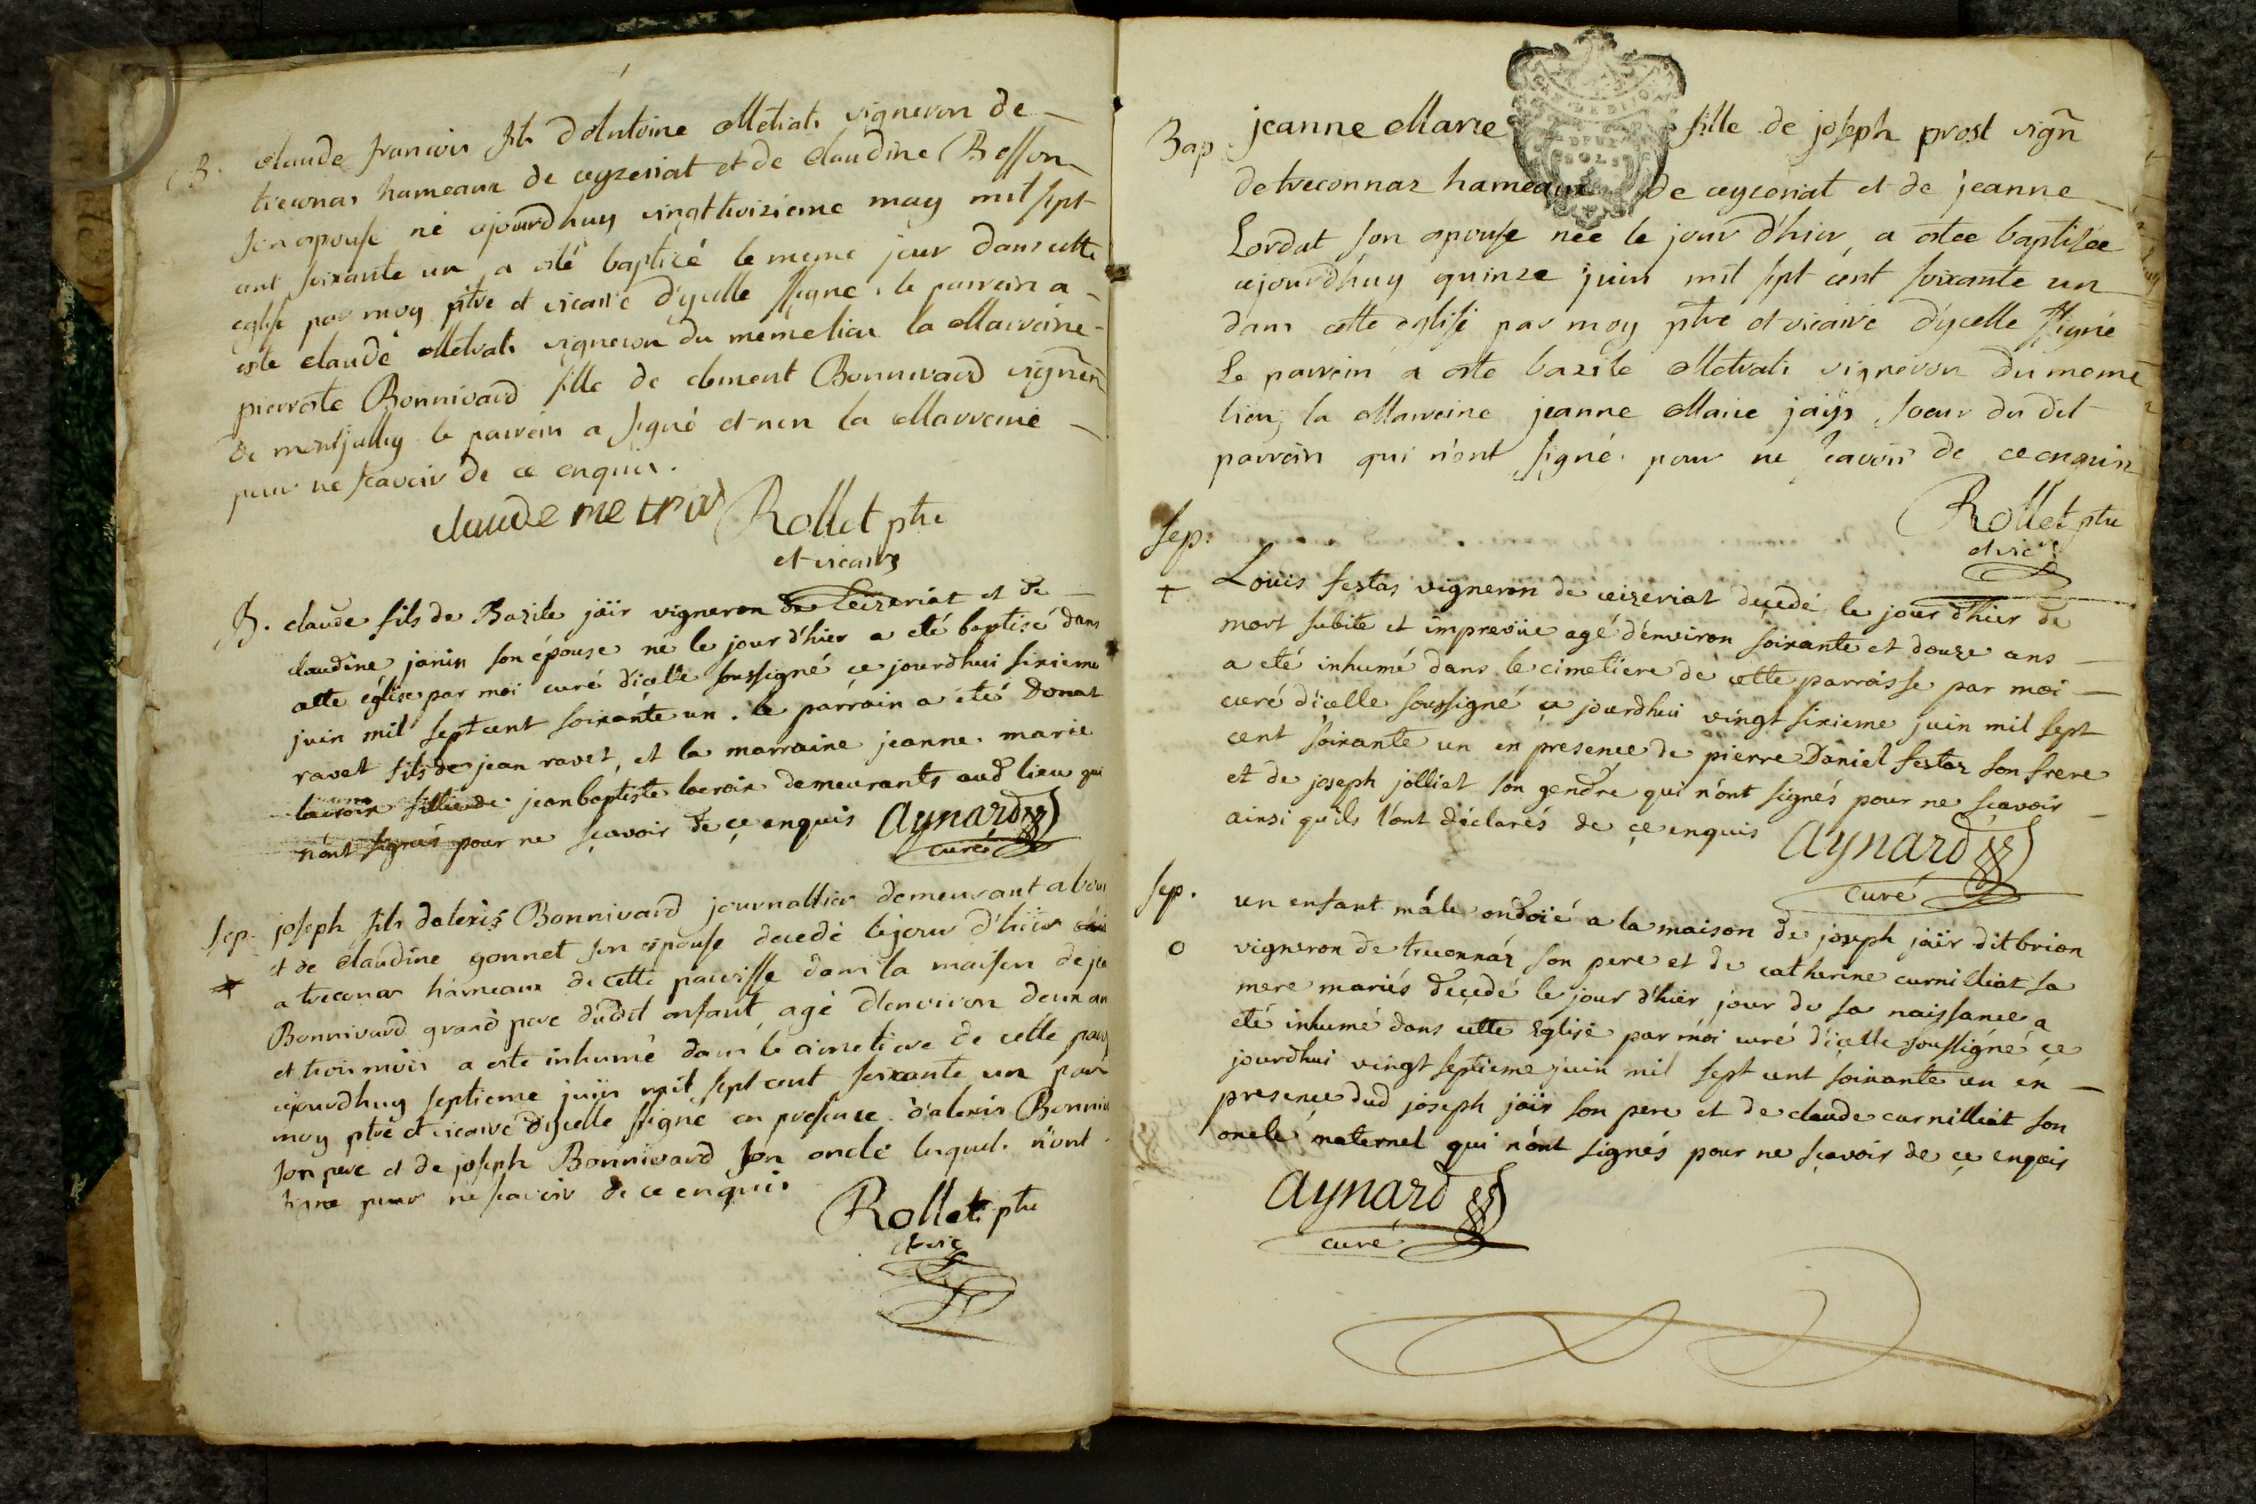 B. claude francois fils d'Antoine Metrats vigneron de
treconas hameaux de ceyzeriat et de claudine Besson
son epouse né ajourdhuy vingt troizieme may mil sept
cent soixante un a esté baptizé le meme jour dans cette
eglise par moy ptre et vicaire d'ycelle ssigne. le parrein a
este claude Metrats vigneron du meme lieu la Marreine
pierrette Bonnivard fille de clement Bonnivard vigñon
de montjully le parrein a signé et non la Marreine
pour ne scavoir de ce enquis.
claude metras Rollet ptre
et vicaire
B. claude fils de Bazile jäir vigneron de Ceizeriat et de
claudine janin son épouse né le jour d'hier a eté baptisé dans
cette église par moi curé d'icelle soussigné ce jourdhui sixieme
juin mil sept cent soixante un. le parrain a été Donat
ravet fils de jean ravet, et la marraine jeanne marie
lacroix fille de jean baptiste lacroix demeurants aud lieu qui
n'ont signés pour ne sçavoir de ce enquis Aynard
curé
Sep. joseph fils d'alexis Bonnivard journallier demeurant a
et de claudine gonnet son epouse decedé le jour d'hier
a treconas hameaux de cette parroisse dans la maison de
Bonnivard grand pere dudit enfant, agé d'environ deux an
et trois mois a este inhumé dans le cimetiere de cette
ajourdhuy septieme juin mil sept cent soixante un par
moy ptre et vicaire d'ycelle ssigne en presence d'alexis
son pere et de joseph Bonnivard son oncle lesquels n'ont
signe pour ne scavoir de ce enquis
Rollet ptre
et vic
Bap jeanne Marie fille de joseph prost vigñ
de treconnas hameaux de ceyzeriat et de jeanne
Lordat son epouse née le jour d'hier, a estee baptisée
ajourdhuy quinze juin mil sept cent soixante un
dans cette eglise par moy ptre et vicaire d'ycelle ssigné
Le parrein a este bazile Metrats vigneron du meme
lieu, la Marreine jeanne Marie jäys soeur du dit
parrein qui n'ont signé pour ne scavoir de ce enquis
Rollet ptre
et vic
Sep. Louis festas vigneron de ceizeriat decedé le jour d'hier de
mort subite et imprevüe agé d'environ soixante et douze ans
a eté inhumé dans le cimetiere de cette parroisse par moi
curé d'icelle soussigné ce jourdhui vingt sixieme juin mil sept
cent soixante un en presence de pierre Daniel festas son frere
et de joseph jolliet son gendre qui n'ont signés pour ne sçavoir
ainsi qu'ils l'ont déclarés de ce enquis Aynard
curé
Sep. un enfant mâle ondoié a la maison de joseph jäir dit brion
vigneron de treconnas son pere et de catherine curnilliat sa
mere mariés decedé le jour d'hier jour de sa naissance a
eté inhumé dans cette Eglise par moi curé d'icelle soussigné ce
jourdhui vingt septieme juin mil sept cent soixante un en
presence dud joseph jäir son pere et de claude curnilliat son
oncle maternel qui n'ont signés pour ne sçavoir de ce enquis
Aynard
curé